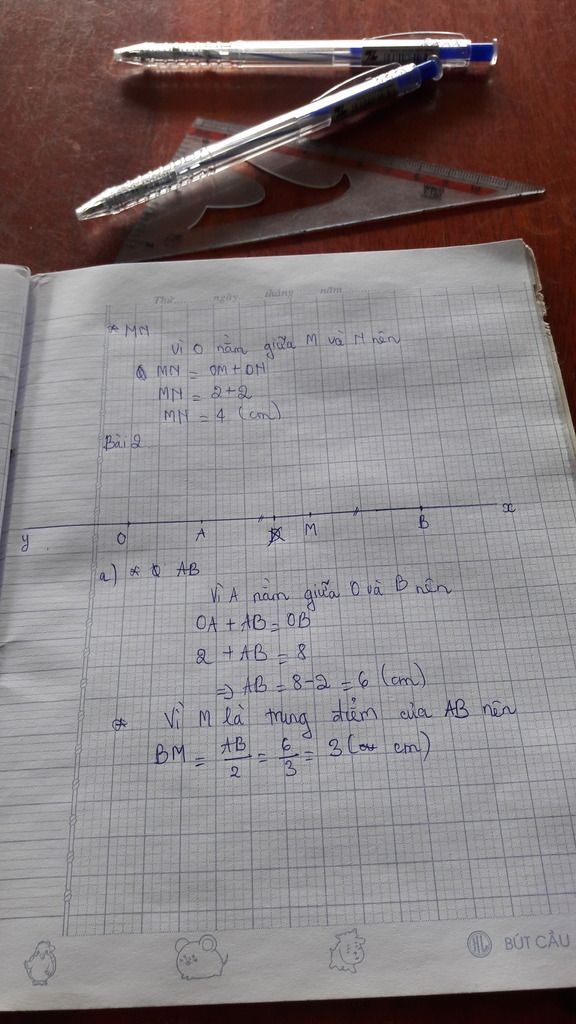 Thứ ngày tháng năm
* MN
Vì O nằm giữa M và N nên
MN = OM + ON
MN = 2+2
MN = 4 (cm)
Bài 2
y O A M B x
a) * AB
Vì A nằm giữa O và B nên
OA + AB = OB
2 + AB = 8
=> AB = 8-2 = 6 (cm)
* Vì M là trung điểm của AB nên
BM = AB/2 = 6/3 = 3 (cm)
HL BÚT CẦU